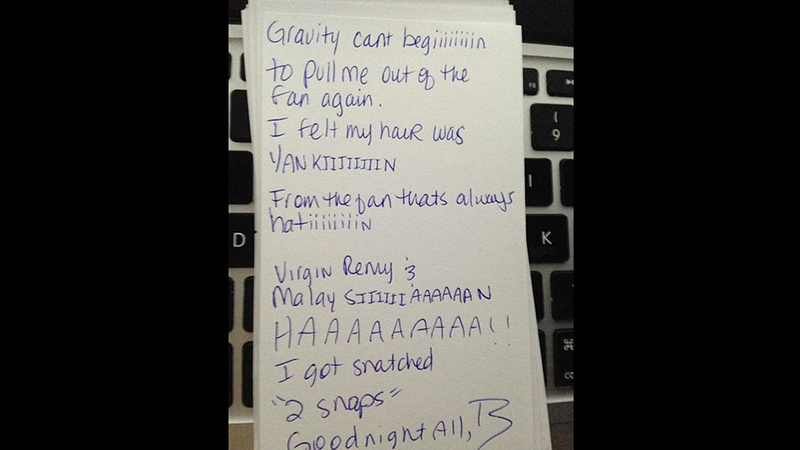 Gravity cant begiiiiiiiin
to pull me out of the
fan again.
I felt my hair was
YANKIIIIIIIIN
From the fan thats always
hatiiiiiiiiN
Virgin Remy &
Malay SIIIIIIAAAAAAN
HAAAAAAAAA!!
I got snatched
"2 snaps"
Goodnight All, B
F8
(
9
I
D
K
⌘